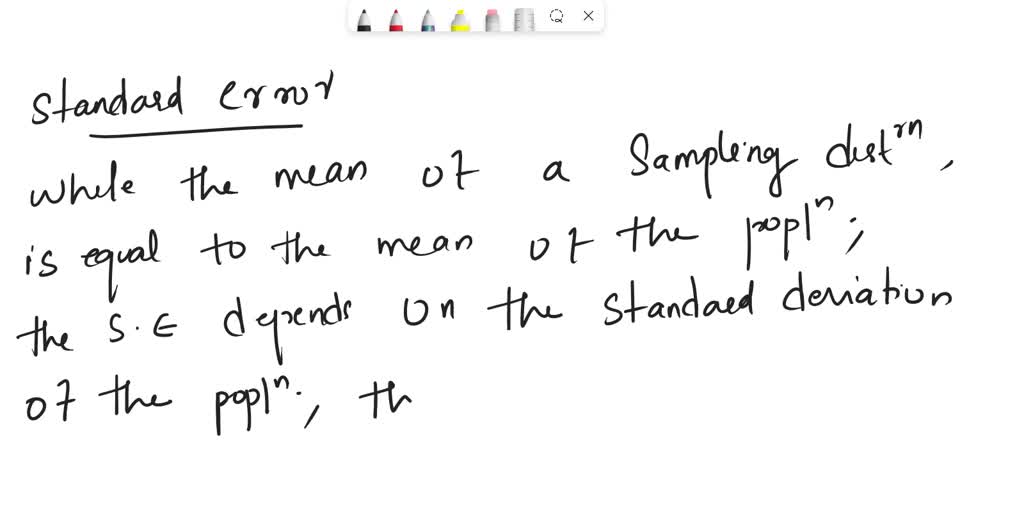 Standard error
while the mean of a Sampling distrn,
is equal to the mean of the popln;
the S.E depends on the standaed deviation
of the popln., th